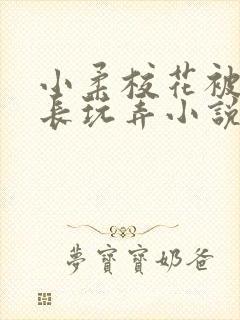 小柔校花被
長玩弄小說
夢寶寶奶爸